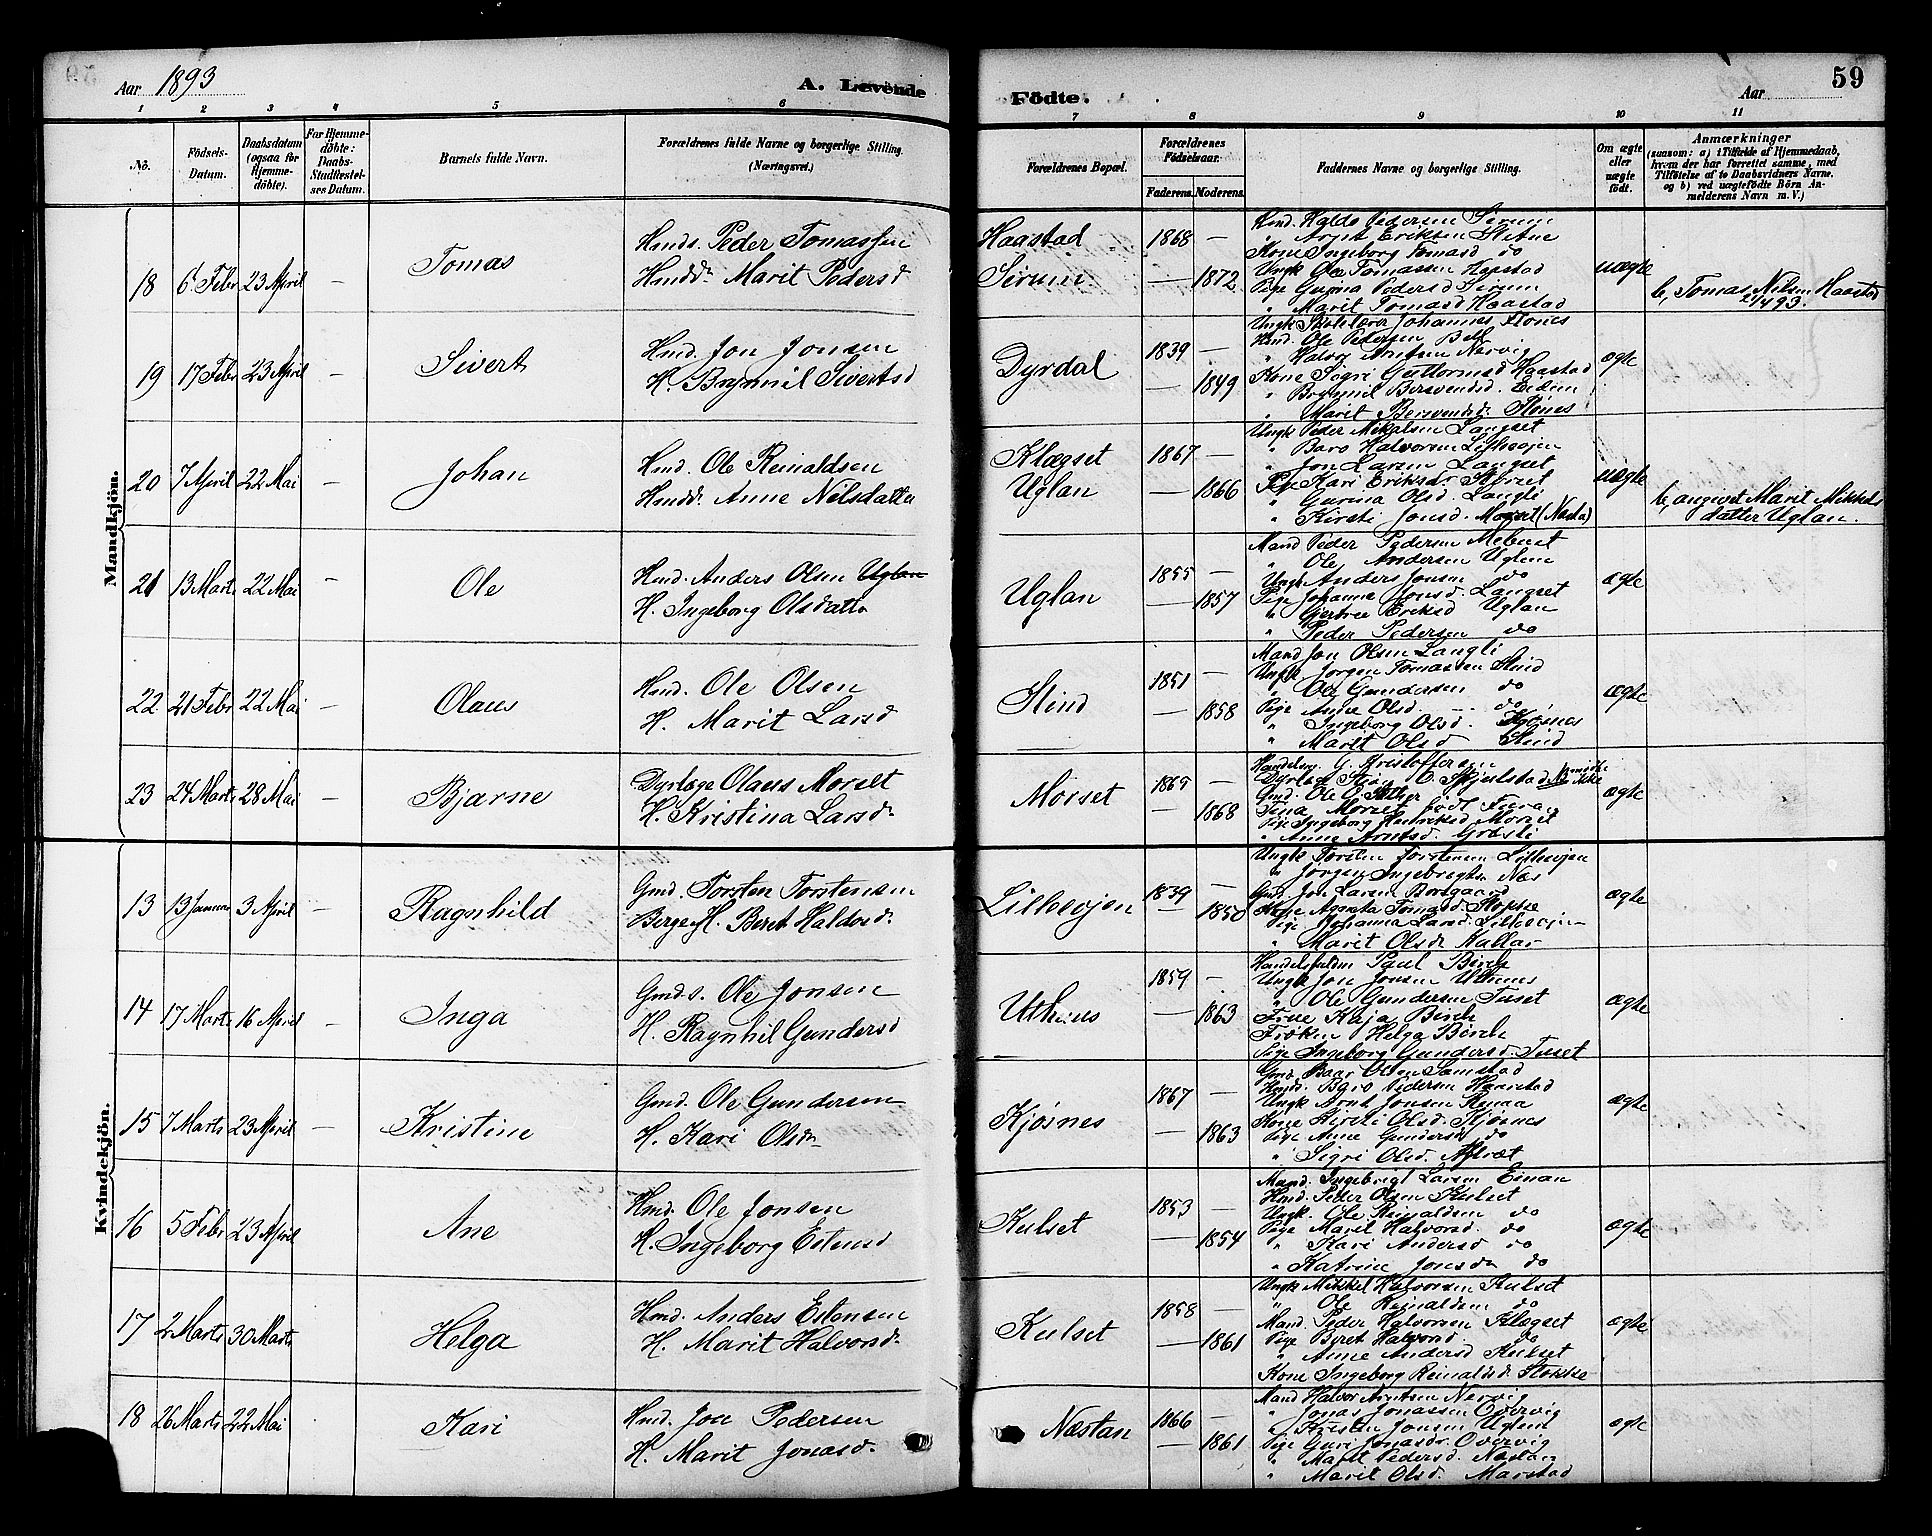 Aar 1893
A. Levende
Födte.
Aar
59
1 2 3 4 5 6 7 8 9 10 11
No.
Födsels-Datum.
Daabsdatum (ogsaa for Hjemmedöbte).
For Hjemmedöbte: Daabs-Stadfæstelses Datum.
Barnets fulde Navn.
Forældrenes fulde Navne og borgerlige Stilling. (Næringsvei.)
Forældrenes Bopæl.
Forældrenes Födselsaar.
Faderens. Moderens.
Faddernes Navne og borgerlige Stilling.
Om ægte eller uægte födt.
Anmærkninger
(saasom: a) i Tilfælde af Hjemmedaab, hvem der har forrettet samme, med Tilföielse af to Daabsvidners Navne. og b) ved uægtefödte Börn Anmelderens Navn m. V.)
Mandkjön.
18 6 Febr 23 April — Tomas
Hmds. Peder Tomassen
Hmdd. Marit Pedersd
Haastad
Sirum
1868 —
— 1872
Ole Tomassen Haastad
Marit Tomasd Haastad
uægte
b, Tomas Nilsen Haastad
21/4 93.
19 17 Febr 23 April — Sivert
Hmd. Jon Jonsen
H. Brynnil Sivertsd
Dyrdal
1839 —
— 1849
Ungk Skolelærer Johannes Flönes
Hmd. Ole Pedersen
" Halvor Arntsen Nervig
Kone Sigri Guttormsd Haastad
" Marit Bersvendsd. Flönes
ægte
20 7 April 22 Mai — Johan
Hmd. Ole Reinaldsen
Hmdd. Anne Nilsdatter
Klægset
Uglan
1867 —
— 1866
Ungk Peder Mikalsen Langset
" Baro Halvorsen Lillevojen
" Jon Larsen Langset
" Gurina Olsd. Langli
" Kirsti Jonsd.
uægte
b, angivet Marit Mikkels
datter Uglan.
21 13 Marts 22 Mai — Ole
Hmd. Anders Olsen Uglan
H. Ingeborg Olsdatter
Uglan
1855 —
— 1857
Mand Peder Pedersen Mebust
" Ole Andersen Uglan
Ungk Anders Jonsen do
Pige Johanna Jonsd. Langset
" Gjertrue Eriksd Uglan
" Peder Pedersen do
ægte
22 21 Febr 22 Mai — Olaus
Hmd. Ole Olsen
H. Marit Larsd
Slind
1851 —
— 1858
Mand Jon Olsen Langli
Ungk Jorgen Tomassen Slind
" Ole Gundersen do
Pige Anne Olsd. do
" Ingeborg Olsd. Kjösnes
" Marit Olsd Slind
ægte
23 24 Marts 28 Mai — Bjarne
Dyrlæge Olaus Morset
H. Kristina Larsd.
Morset
1865 —
— 1868
Handelsm. G. Kristoffersen
Tina Morset född
Pige Ingeborg Henriksd Morset
" Anne Arntsd Græsli
ægte
Kvindekjön.
13 13 Januar 3 April — Ragnhild
Gmd. Torsten Torstensen
Berge H. Beret Haldosd.
Lillevojen
1839 —
— 1850
Ungk Torsten Torstensen Lillevojen
" Jörgen Ingebrigtsen Næs
Gmd. Jon Larsen Borsgaard
Kone Agneta Tomasd. Stokke
Pige Johanna Larsd. Lillevojen
" Marit Olsdr Kallar
ægte
14 17 Marts 16 April — Inga
Gmds. Ole Jonsen
H. Ragnhil Gundersd
Uthus
1859 —
— 1863
Paul Birch
Ungk Jon Jonsen Uthus
" Ole Gundersen Tuset
Frue Kaja Birch
Fröken Helga Birch
Pige Ingeborg Gundersd. Tuset
ægte
15 7 Marts 23 April — Kristine
Gmd. Ole Gundersen
H. Kari Olsdr
Kjösnes
1867 —
— 1863
Gmd Baar Olsen Samstad
Hmd. Baro Pedersen Haarstad
Ungk Arnt Jonsen Renaa
Kone Kirsti Olsd. Kjösnes
Pige Anne Gundersd do
" Sigri Olsd. Aftret
ægte
16 5 Febr 23 April Ane
Hmd. Ole Jonsen
H. Ingeborg Estensd
Kulset
1853 —
— 1854
Mand. Ingebrigt Larsen Eiman
Hmd. Peder Olsen Kulset
Ungk. Ole Reinaldsen do
Pige Marit Halvorsd. do
" Kari Andersd do
" Katrine Jonsdr do
ægte
17 2 Marts 30 Marts Helga
Hmd. Anders Estensen
H. Marit Halvorsd.
Kulset
1858 —
— 1861
Ungk Mikkel Halvorsen Kulset
" Ole Reinaldsen do
Mand. Peder Halvorsen Klægset
Pige Beret Halvorsd. do
" Anne Andersd Kulset
Kone Ingeborg Reinaldsd. Stokke
ægte
18 26 Marts 22 Mai Kari
Hmd. Jon Pedersen
H. Marit Jonasd.
Næstan
1866 —
— 1861
Mand Halvor Arntsen Nervig
" Jonas Jonassen Overvig
" Kristen Jonsen Uglan
Pige Guri Jonasdr. Overvig
" Marit Pedersd. Næstan
" Marit Olsd. Marstad
ægte